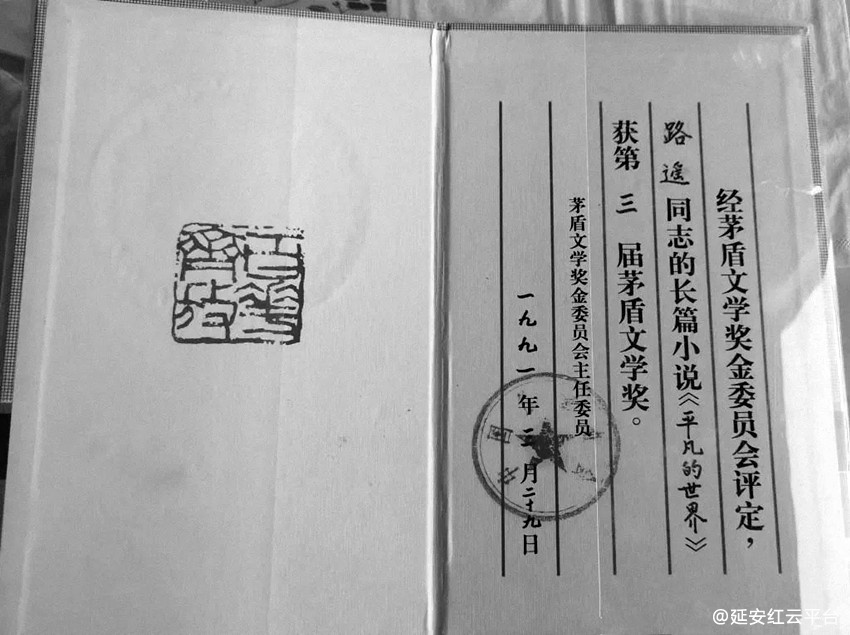 经茅盾文学奖金委员会评定，
路遥同志的长篇小说《平凡的世界》
获第三届茅盾文学奖。
茅盾文学奖金委员会主任委员
一九九一年三月二十九日
中国
@延安红云平台